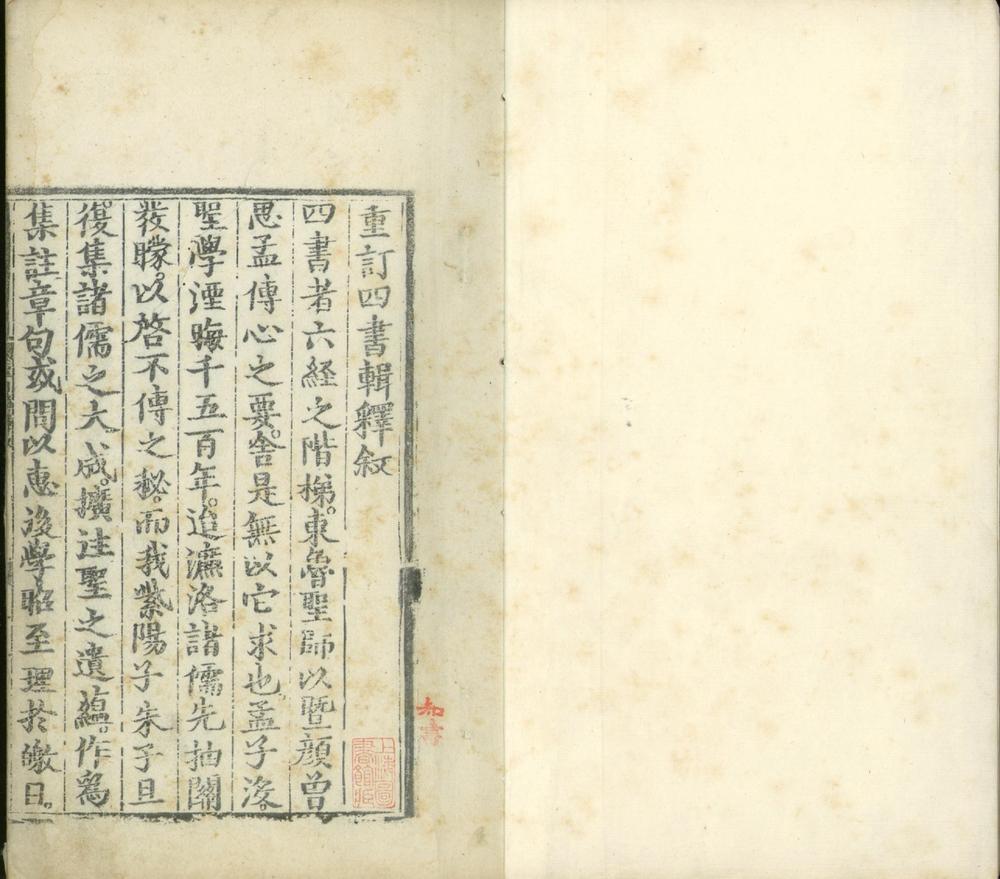 重訂四書輯釋叙
四書者六経之階梯。東魯聖師以暨顔曾
思孟傳心之要。舍是無以它求也。孟子没。
聖學湮晦千五百年。迨濂洛諸儒先抽關
發矇。以啓不傳之秘。而我紫陽子朱子且
復集諸儒之大成。擴往聖之遺蘊。作爲
集註章句或問以惠後學昭至理於皦日。
上海圖
書館藏